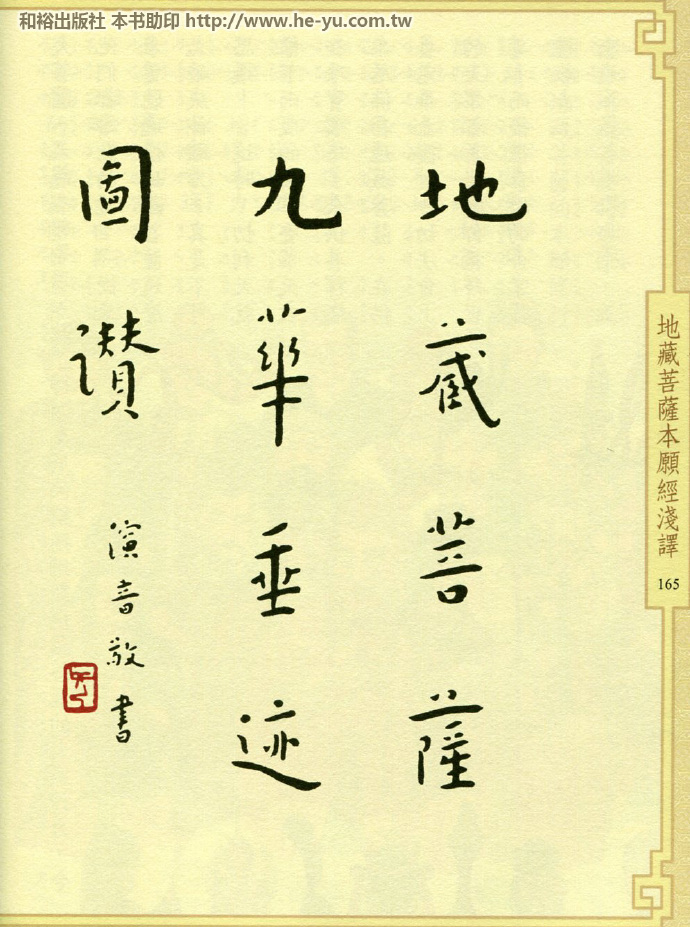 和裕出版社 本书助印 http://www.he-yu.com.tw
地藏菩薩
九華垂迹
圖讚
演音敬書
地藏菩薩本願經淺譯
165